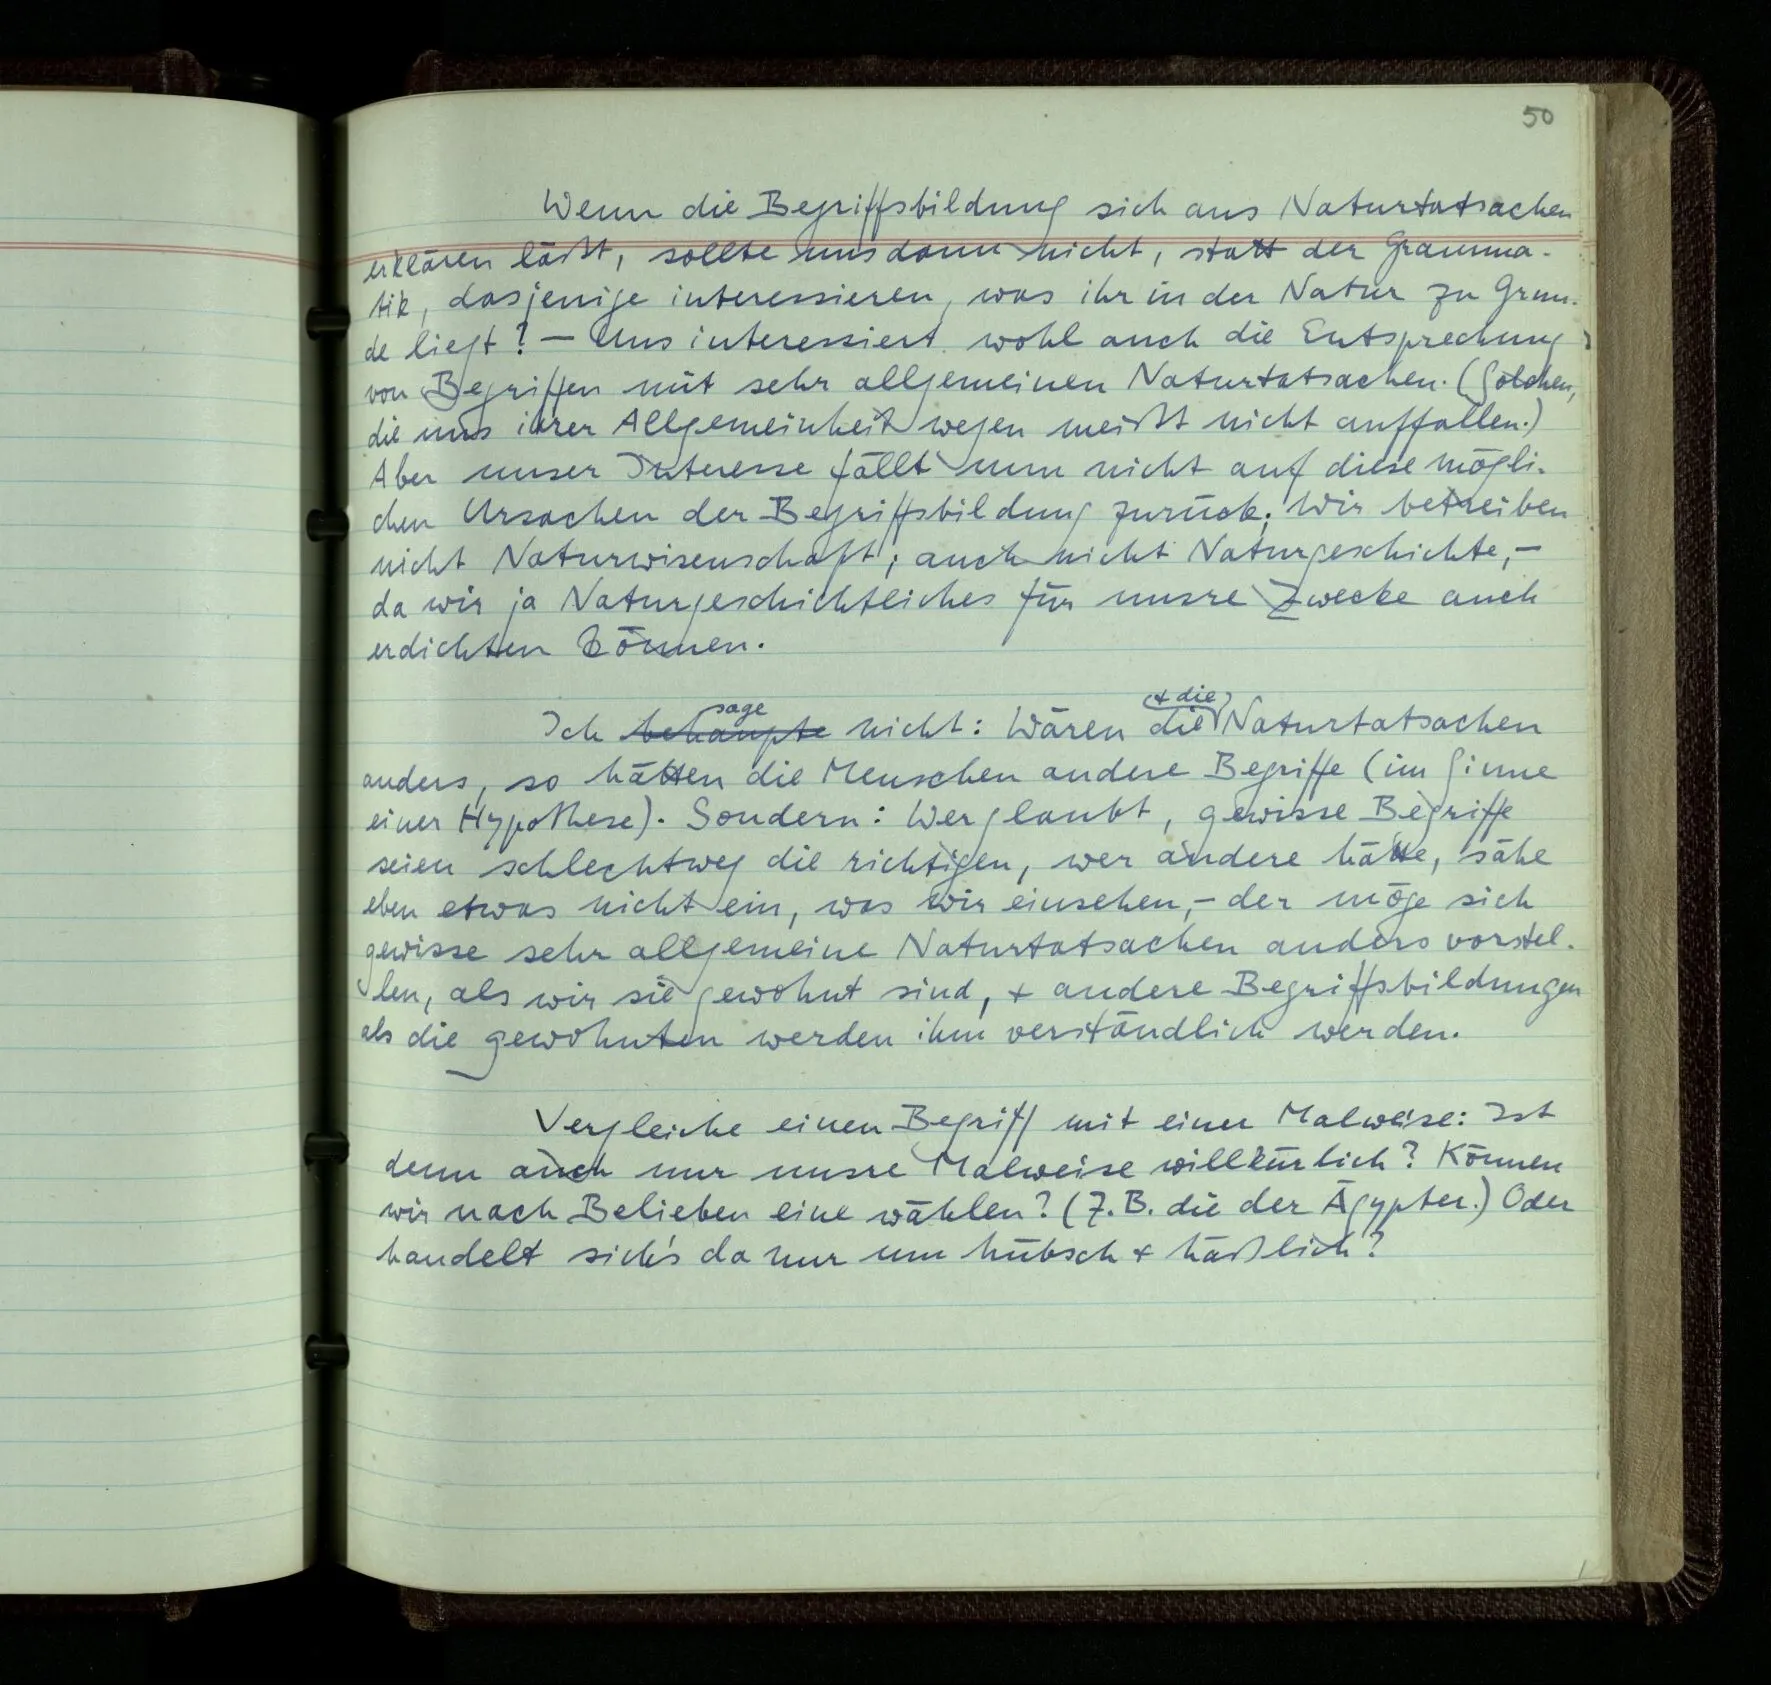 50
Wenn die Begriffsbildung sich aus Naturtatsachen
erklären läßt, sollte uns dann nicht, statt der Gramma-
tik, dasjenige interessieren, was ihr in der Natur zu Grun-
de liegt? – Uns interessiert wohl auch die Entsprechung
von Begriffen mit sehr allgemeinen Naturtatsachen. (Solchen,
die uns ihrer Allgemeinheit wegen meißt nicht auffallen.)
Aber unser Interesse fällt nun nicht auf diese mögli-
chen Ursachen der Begriffsbildung zurück; Wir betreiben
nicht Naturwisenschaft; auch nicht Naturgeschichte, –
da wir ja Naturgeschichtliches für unsre Zwecke auch
erdichten können.
sage (+ die)
Ich behaupte nicht: Wären die Naturtatsachen
anders, so hätten die Menschen andere Begriffe (im Sinne
einer Hypothese). Sondern: Wer glaubt, gewisse Begriffe
seien schlechtweg die richtigen, wer andere hätte, sähe
eben etwas nicht ein, was wir einsehen, – der möge sich
gewisse sehr allgemeine Naturtatsachen anders vorstel-
len, als wir sie gewohnt sind, + andere Begriffsbildungen
als die gewohnten werden ihm verständlich werden.
Vergleiche einen Begriff mit einer Malweise: Ist
denn auch nur unsre Malweise willkürlich? Können
wir nach Belieben eine wählen? (Z.B. die der Ägypter.) Oder
handelt sich's da nur um hübsch + häßlich?